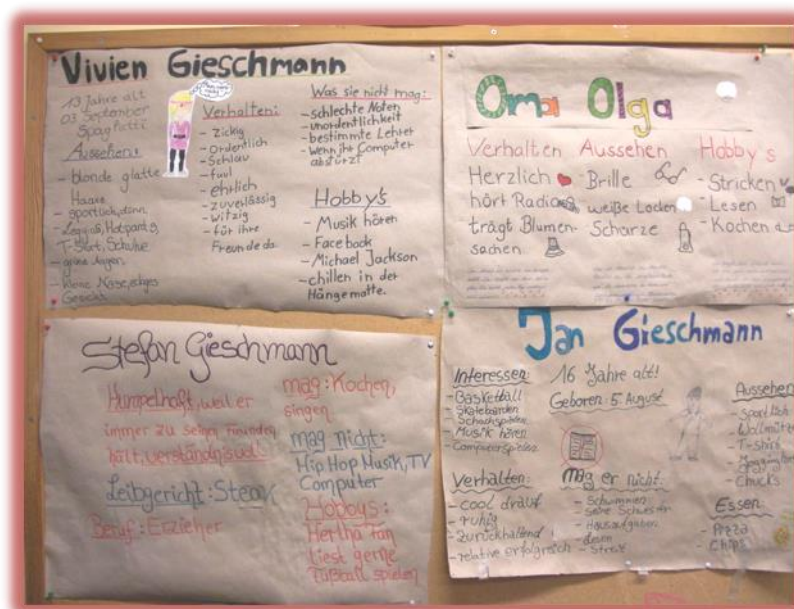 Vivien Gieschmann
13 Jahre alt
03 September
Spagetti
Aussehen:
- blonde glatte
Haare
- sportlich, dünn
- Leggins, Hotpants,
T-Shirt, Schuhe
- grüne Augen
- kleine Nase,
Gesicht
Verhalten:
- zickig
- ordentlich
- schlau
- faul
- ehrlich
- zuverlässig
- witzig
- für ihre
Freunde da.
Was sie nicht mag:
- schlechte Noten
- unordentlichkeit
- bestimmte Lehrer
- Wenn ihr Computer
abstürzt
Hobby's
- Musik hören
- Facebook
- Michael Jackson
- chillen in der
Hängematte.
Oma Olga
Verhalten
Herzlich
hört Radio
trägt Blumen-
sachen
Aussehen
- Brille
weiße Locken
- Schürze
Hobby's
- Stricken
- Lesen
- Kochen
Stefan Gieschmann
Humpelhaft, weil er
immer zu seinen Freunden
hält, verständnisvoll
Leibgericht: Steak
Beruf: Erzieher
mag: Kochen,
singen
mag nicht:
Hip Hop Musik, TV
Computer
Hobbys:
Hertha Fan
liest gerne
Fußball spielen
Jan Gieschmann
Interessen:
- Basketball
- Skateboarden
- Schachspielen
- Musik hören
- Computerspielen
Verhalten:
- cool drauf
- ruhig
- zurückhaltend
- relative erfolgreich
16 Jahre alt!
Geboren: 5. August
mag er nicht:
- Schwimmen
- Seine Schwester
- Hausaufgaben
- lesen
- Streit
Aussehen
- sportlich
- Wollmütze
- T-shirt
- Chuck's
Essen:
- Pizza
- Chips